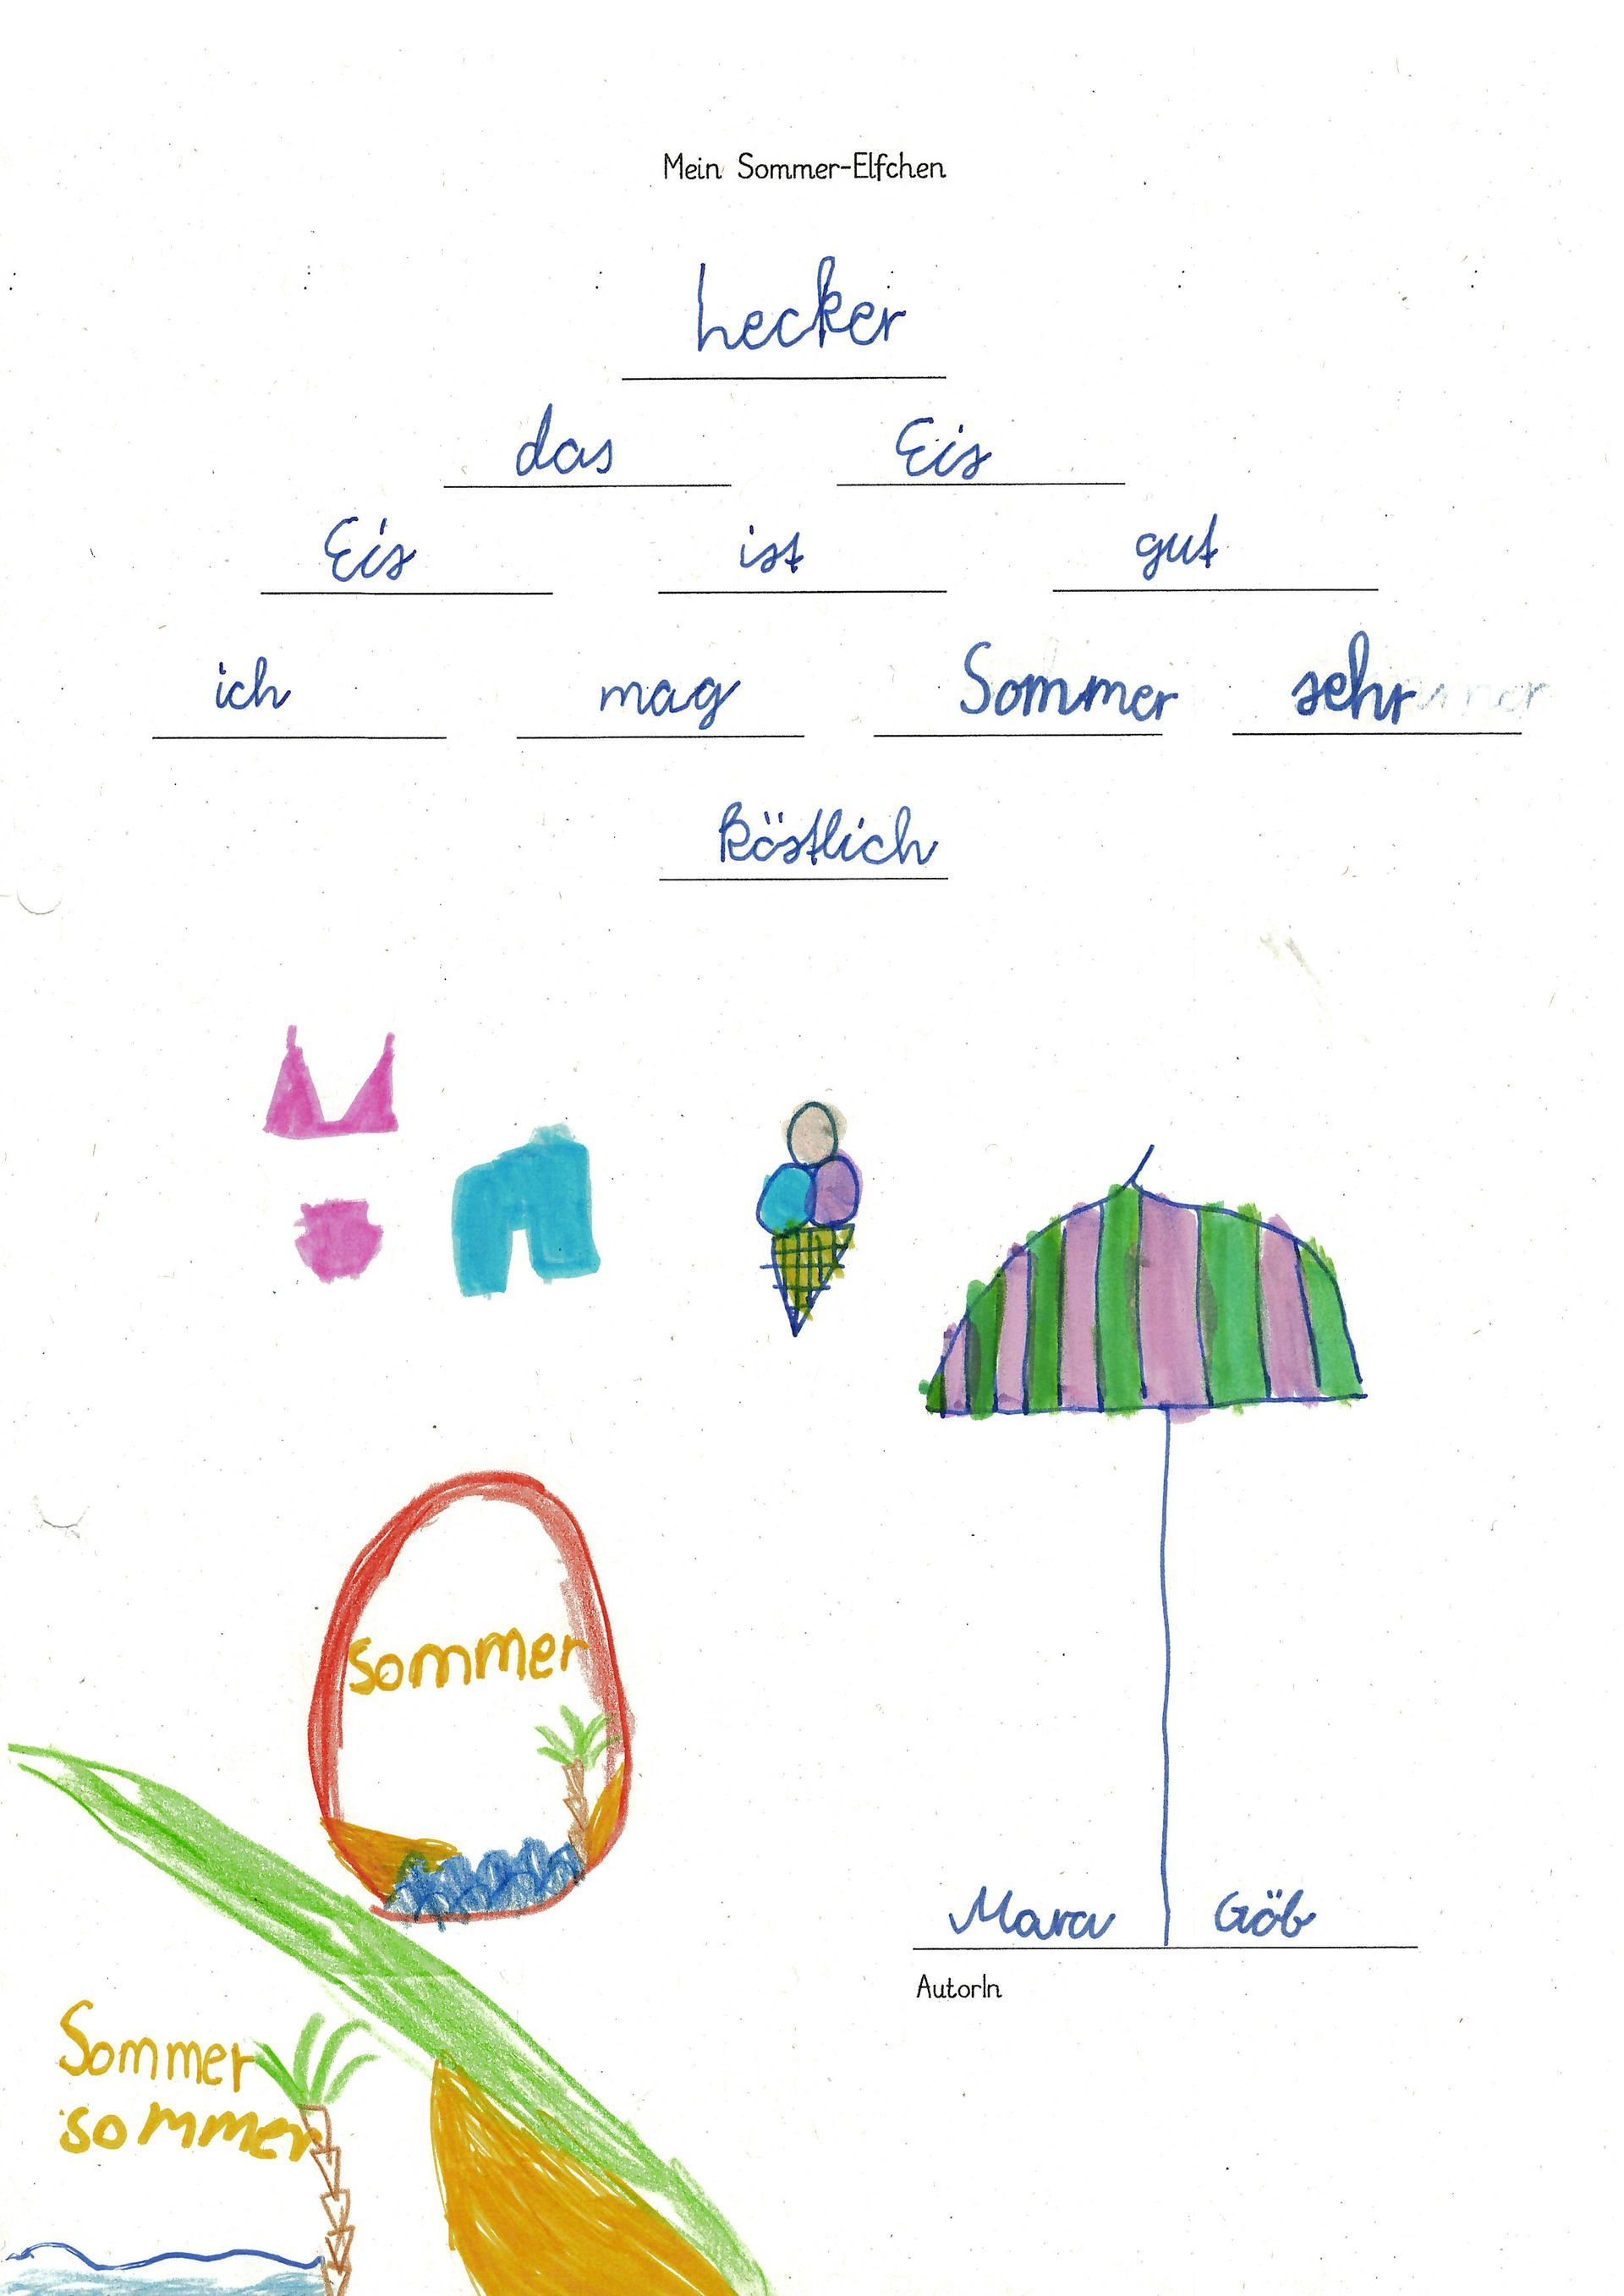 Mein Sommer-Elfchen
Lecker
das Eis
Eis ist gut
ich mag Sommer sehr
köstlich
sommer
Mara Göb
AutorIn
Sommer
sommer